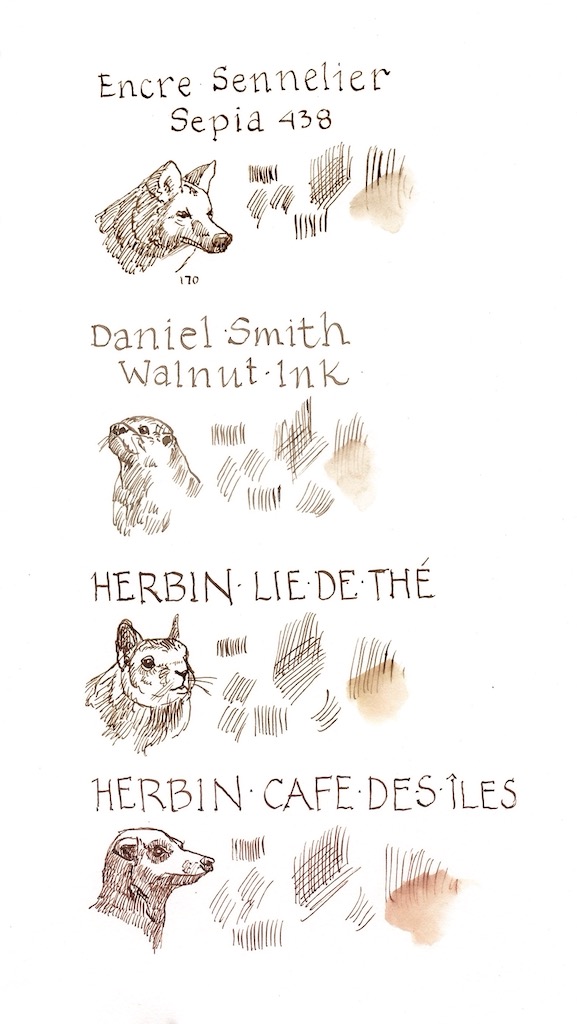 Encre Sennelier
Sepia 438
170
Daniel·Smith
Walnut·Ink
HERBIN·LIE·DE·THÉ
HERBIN·CAFE·DES·ÎLES